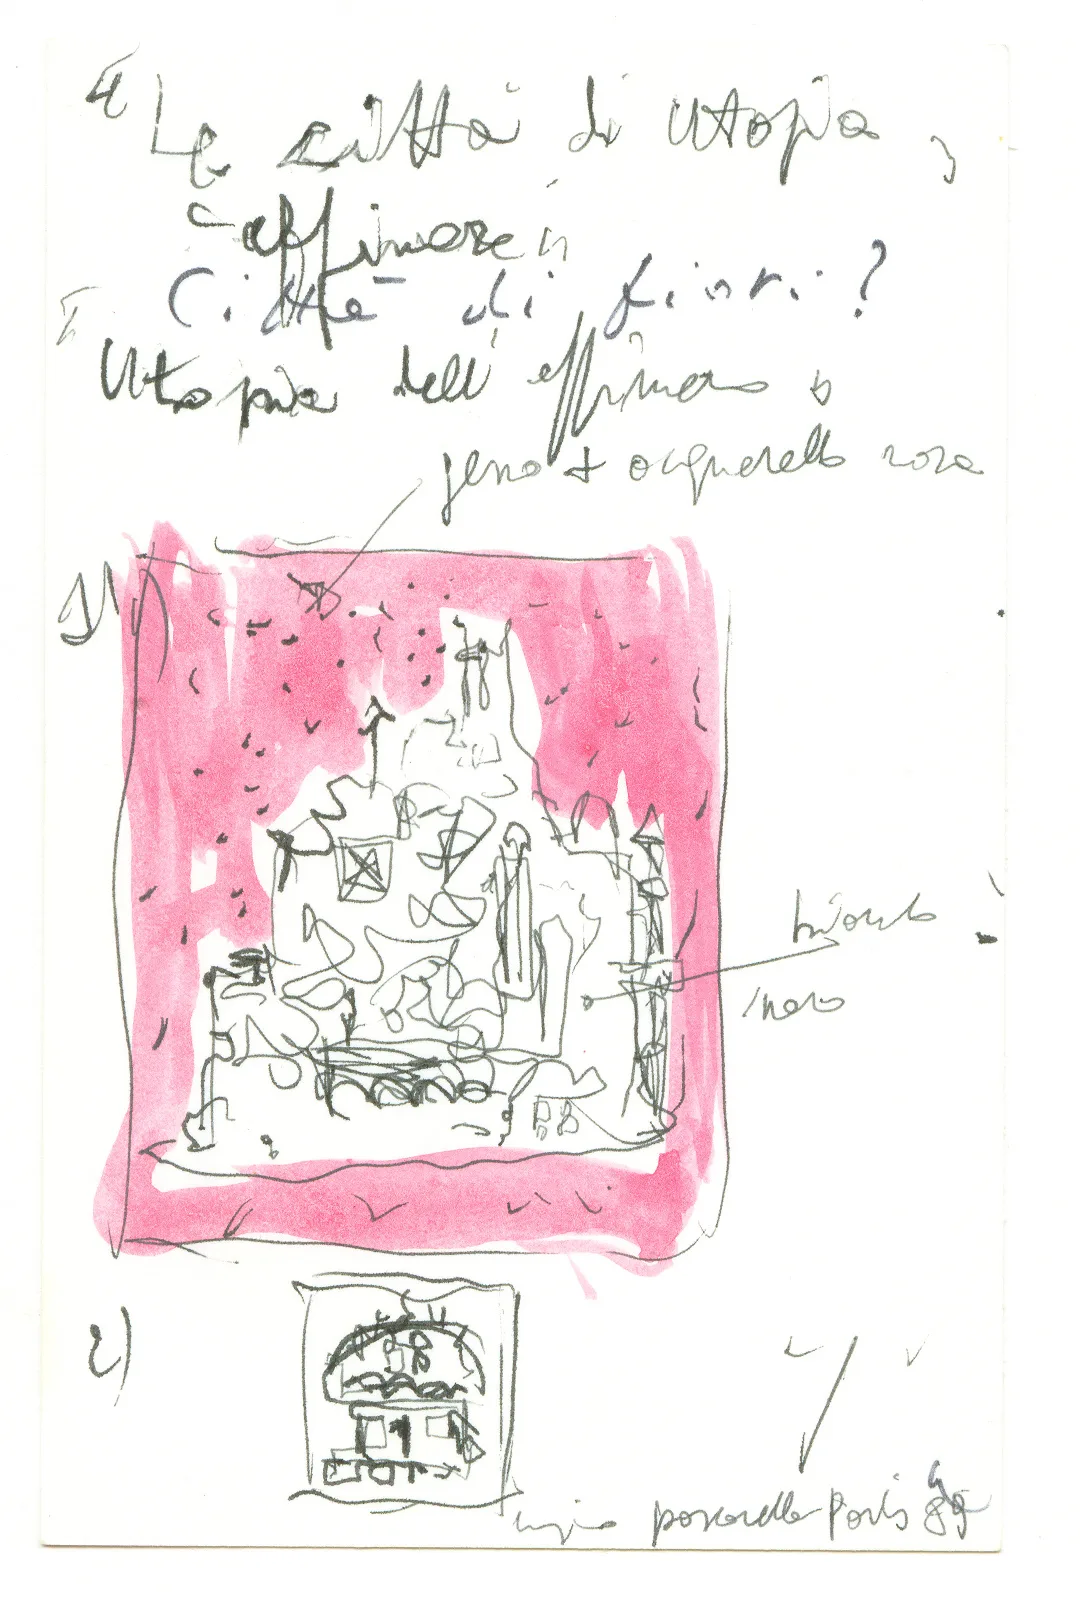 "La città di utopia,
effimera"
Città di fiori?
"Utopia dell'effimero"
gesso + acquerello rosa
1)
bianco
nero
2)
pascarella Paris 89